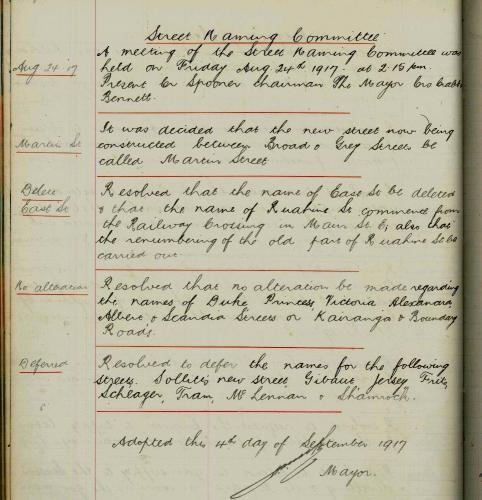 Street Naming Committee
A meeting of the Street Naming Committee was
Aug 24 '17
held on Friday Aug 24th 1917 at 2.15 p.m.
Present Cr Spooner Chairman The Mayor Crs Crabb
Bennett.
It was decided that the new street now being
Martin St
constructed between Broad & Grey Streets be
called Martin Street
Delete
Resolved that the name of East St be deleted
East St
& that the name of Ruahine St commence from
the Railway Crossing in Main St E, also that
the renumbering of the old part of Ruahine St be
carried out
No alteration
Resolved that no alteration be made regarding
the names of Duke Princess, Victoria Alexandra
Albert & Scandia Streets or Kairanga & Boundary
Roads.
Deferred
Resolved to defer the names for the following
streets. Sollitt's new street, Gibaut Jersey Fritz,
Schlager, Tram, McLennan & Shamrock.
Adopted this 4th day of September 1917
Mayor.